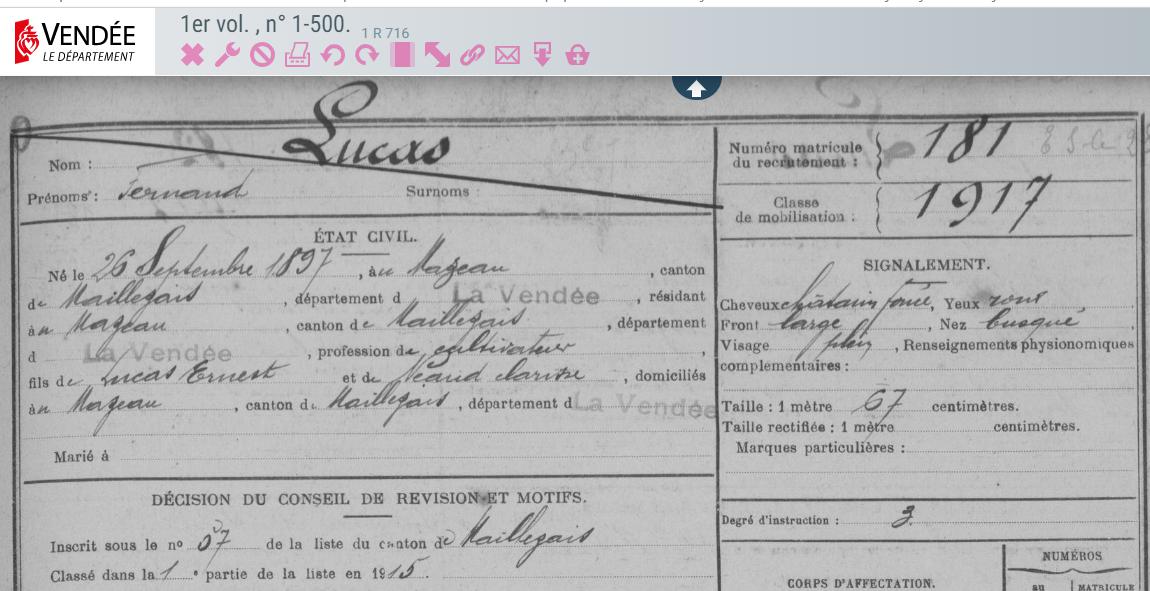 VENDÉE
LE DÉPARTEMENT
1er vol. , n° 1-500. 1 R 716
Nom : Lucas
Prénoms : Fernand Surnoms :
Numéro matricule du recrutement : 181
Classe de mobilisation : 1917
ÉTAT CIVIL.
Né le 26 Septembre 1897, à au Mazeau, canton
de Maillezais, département d La Vendée, résidant
à au Mazeau, canton de Maillezais, département
d La Vendée, profession de cultivateur,
fils de Lucas Ernest et de clarisse, domiciliés
à au Mazeau, canton de Maillezais, département d La Vendée
Marié à
SIGNALEMENT.
Cheveux châtain foncé, Yeux
Front large, Nez busqué,
Visage plein, Renseignements physionomiques
complémentaires :
Taille : 1 mètre 67 centimètres.
Taille rectifiée : 1 mètre centimètres.
Marques particulières :
Degré d'instruction : 3
DÉCISION DU CONSEIL DE REVISION ET MOTIFS.
Inscrit sous le n° 37 de la liste du canton de Maillezais
Classé dans la 1e partie de la liste en 1915.
CORPS D'AFFECTATION.
NUMÉROS
au MATRICULE